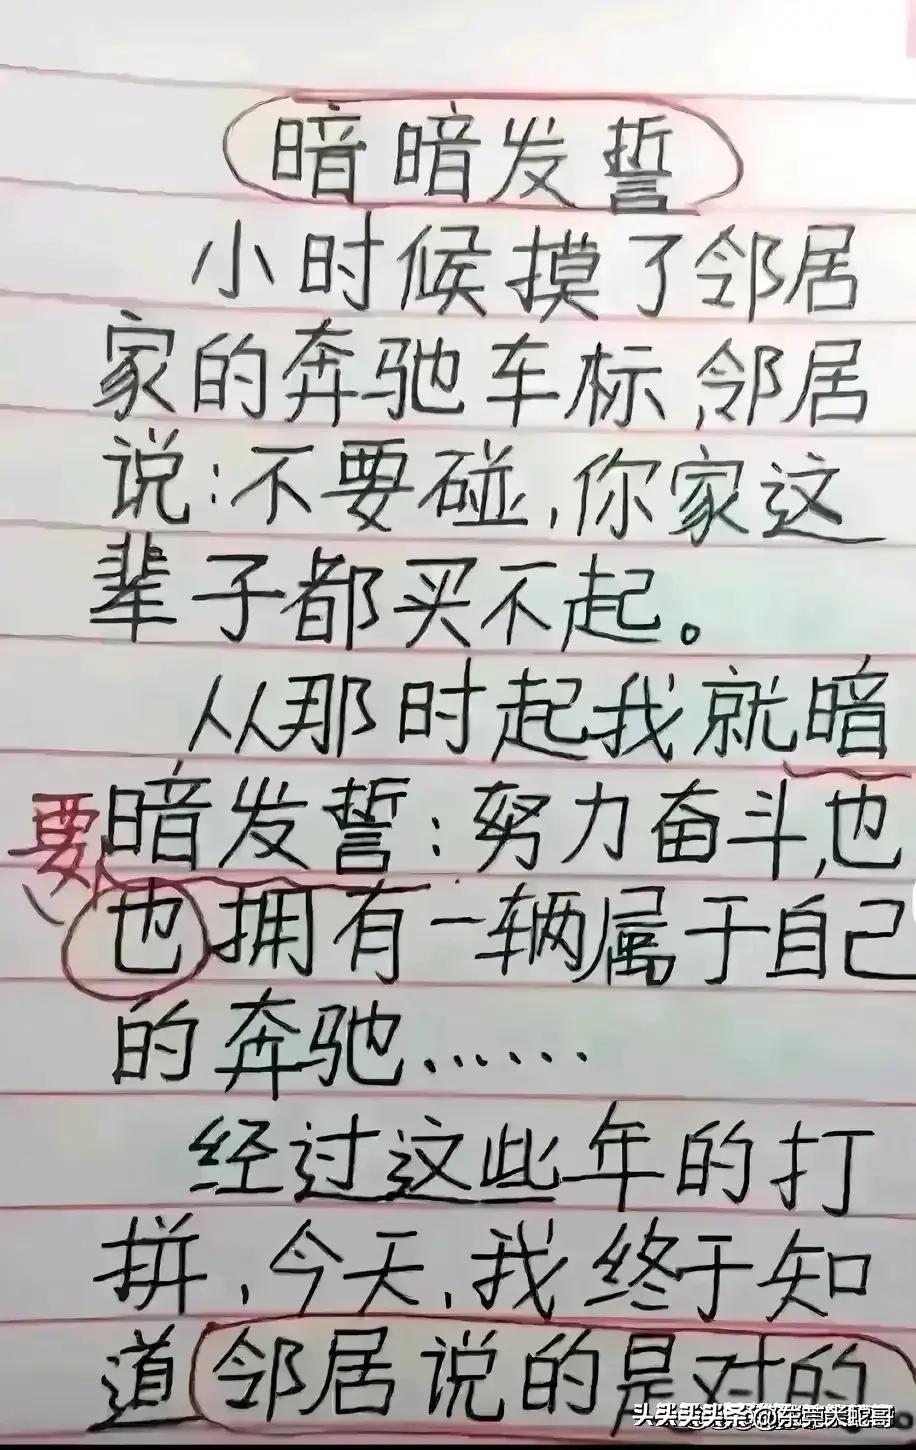 暗暗发誓
小时候摸了邻居
家的奔驰车标,邻居
说:不要碰,你家这
辈子都买不起。
从那时起我就暗
暗发誓:努力奋斗,也
要
也拥有一辆属于自己
的奔驰……
经过这些年的打
拼,今天,我终于知
道邻居说的是对的。